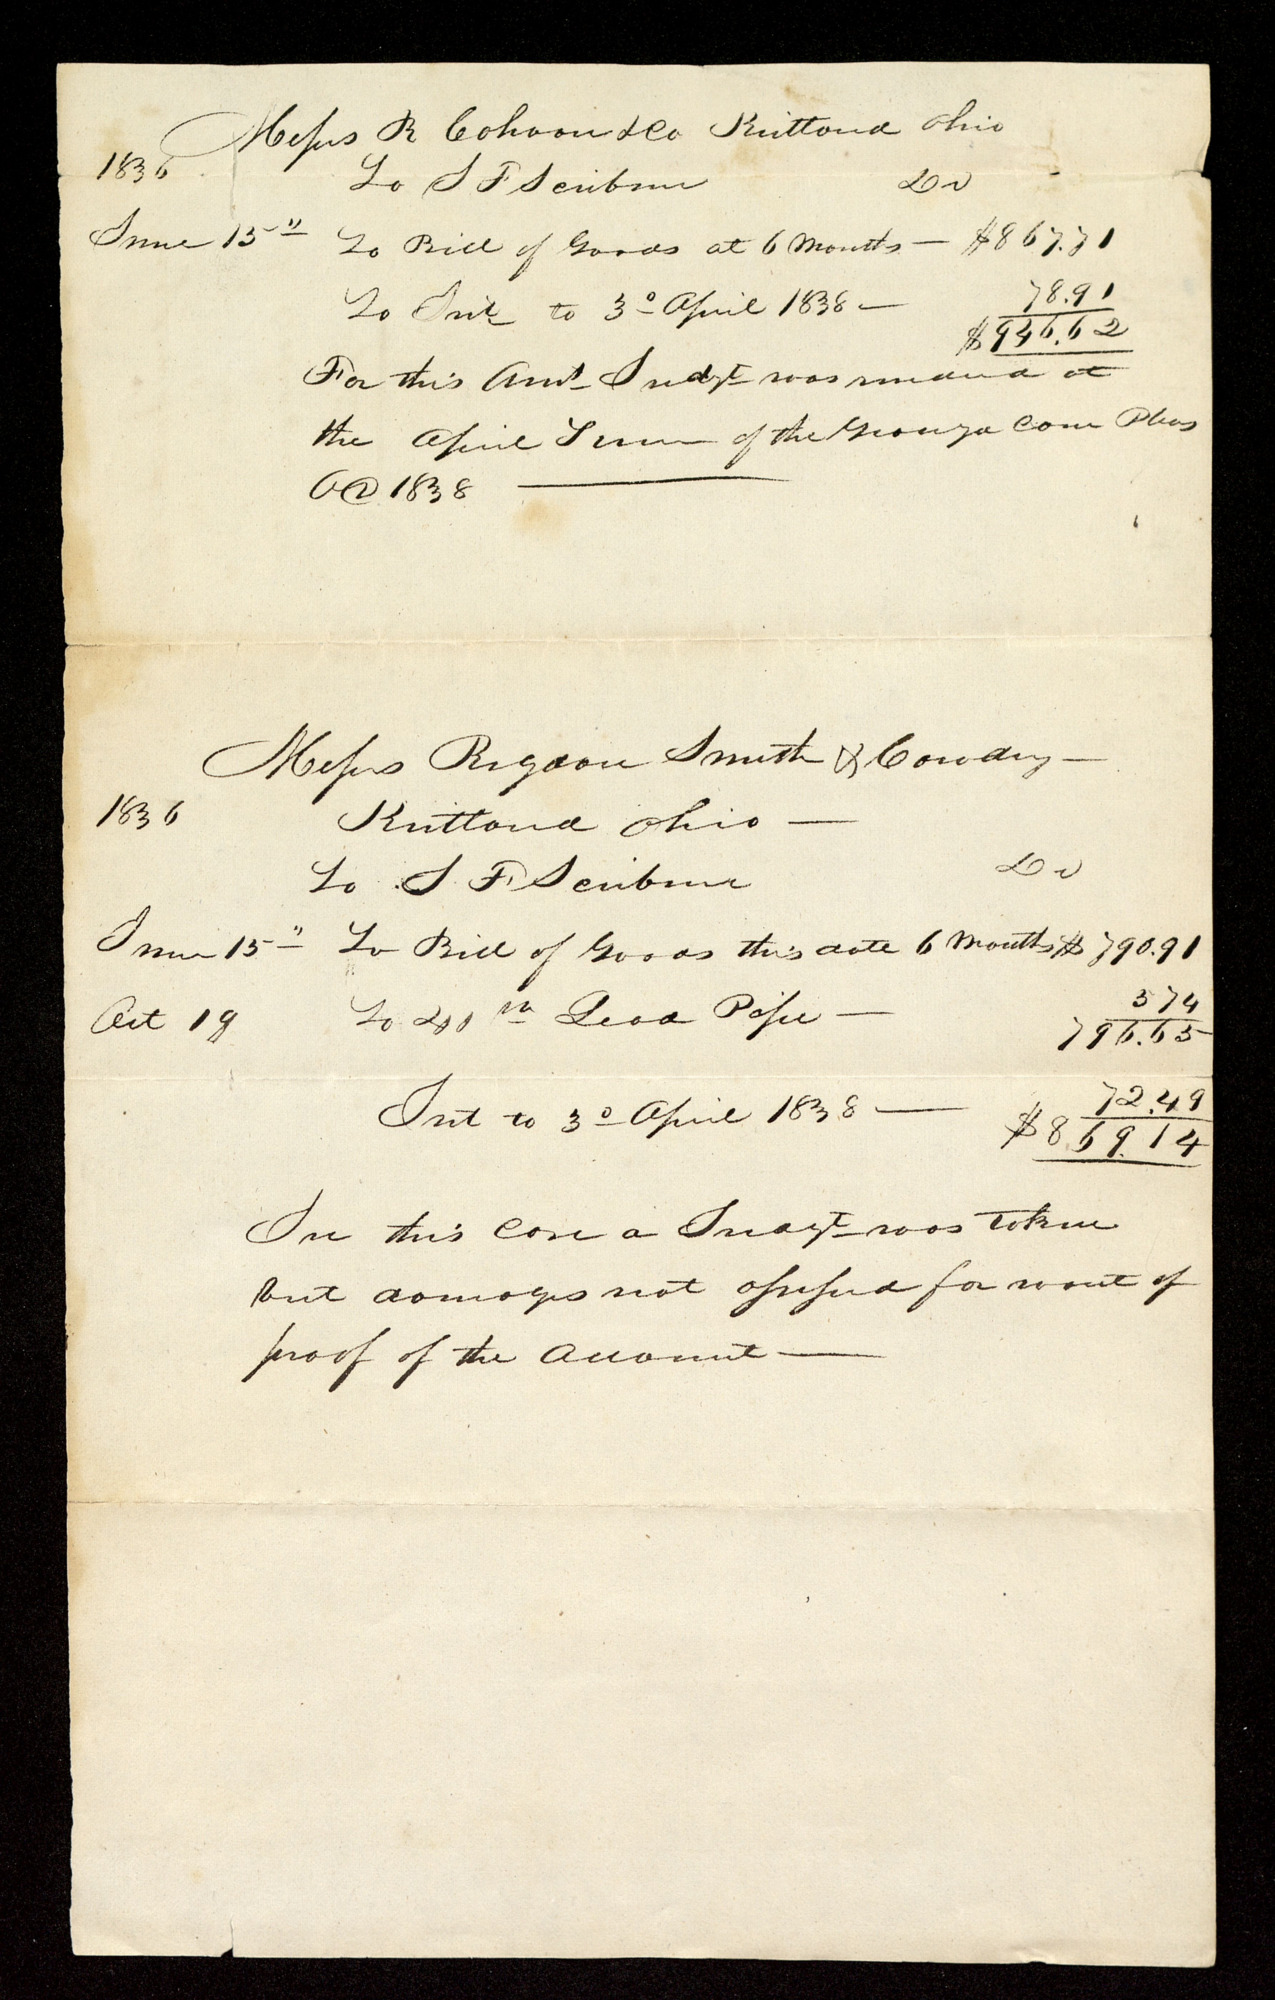 Messrs R Cahoon & Co Kirtland Ohio
1836 To S F Scribner Dr
June 15" To Bill of Goods at 6 Months — $867.71
To Int to 3d April 1838 — 78.91
$946.62
For this Amt Judgt was rendered at
the April Term of the Geauga Com Pleas
AD 1838 ———
Messrs Rigdon Smith & Cowdry —
1836 Kirtland Ohio —
To S F Scribner Dr
June 15" To Bill of Goods this date 6 Months $790.91
Oct 19 To Lead Pipe — 5 74
796.65
Int to 3d April 1838 — 72.49
$869.14
In this case a Judgt was taken
but damages not assessed for want of
proof of the account —